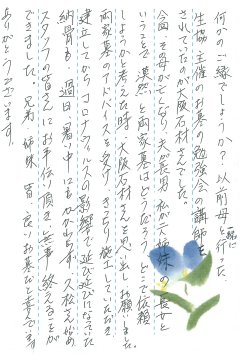 何かのご縁でしょうか?以前母と行った
生協主催のお墓の勉強会の講師を
されてたのが大阪石材さんでした。
今回その母が亡くなり、夫が長男、私が三姉妹の長女と
いうことで漠然と両家墓はどうだろう、どこで依頼
しようかと考えた時、大阪石材さんを思い出しお願いしました。
両家墓のアドバイスを受け、きっちり施工していただき
建立してからコロナウイルスの影響で延び延びになっていた
納骨も過日、暑い中にもかかわらず、久松さん始め
スタッフの皆さんにお手伝い頂き無事終えることが
できました。兄弟姉妹皆、良いお墓だと喜んでます
ありがとうございます。